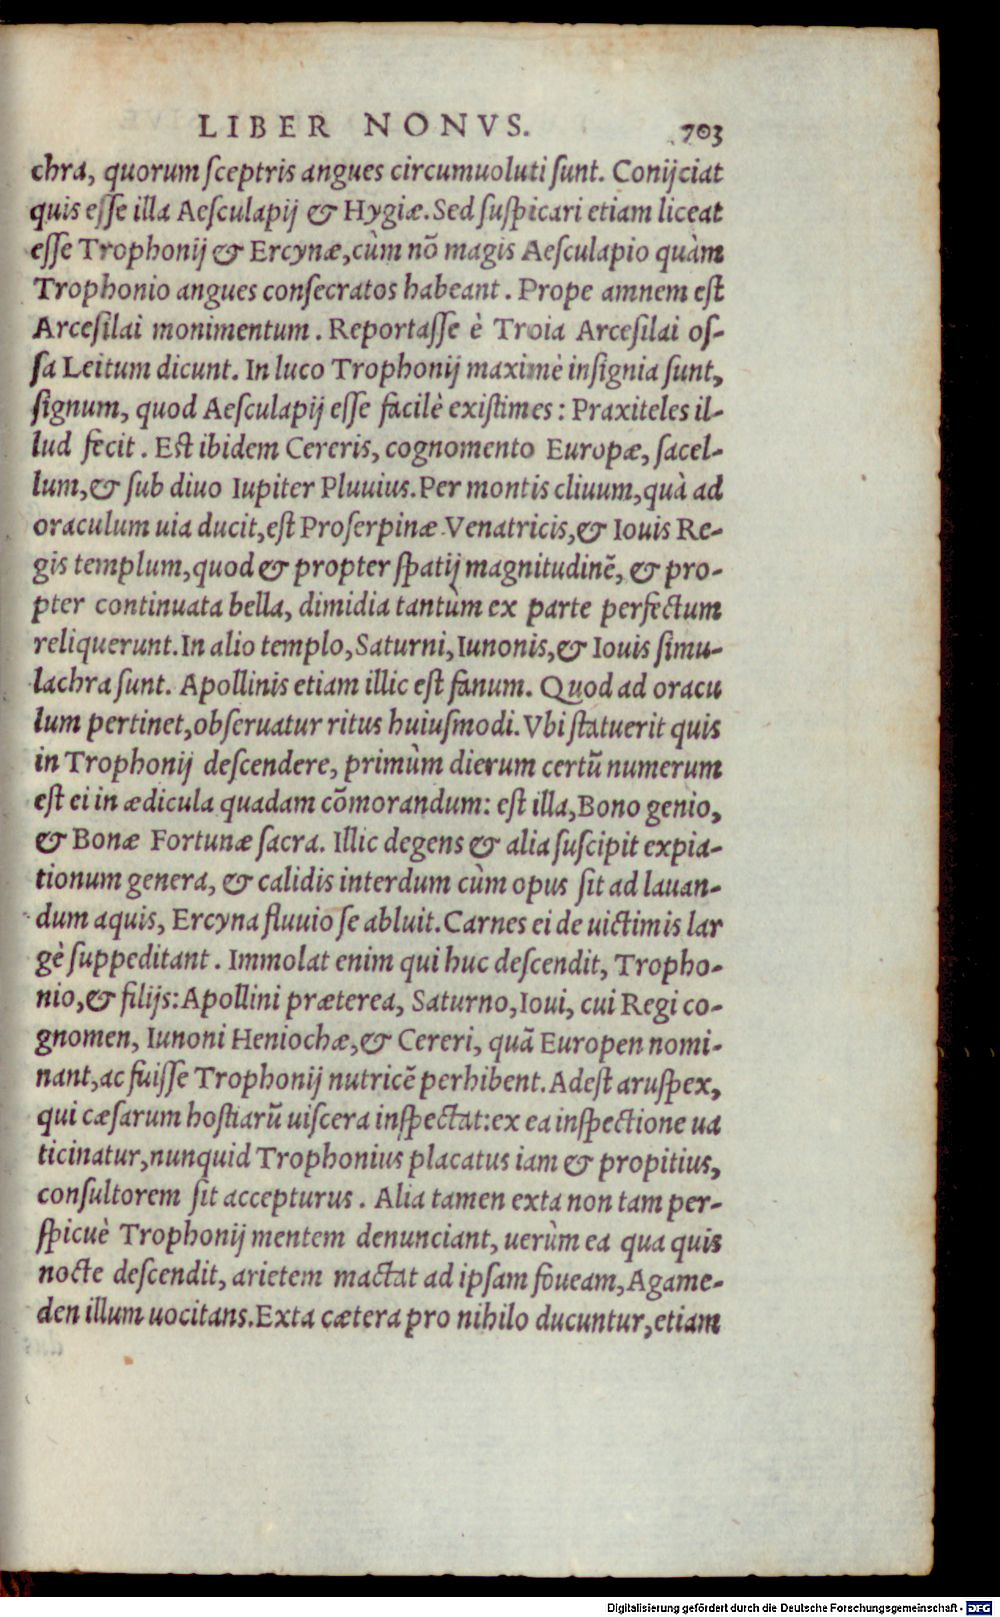 LIBER NONVS. 703
chra, quorum sceptris angues circumuoluti sunt. Conijciat
quis esse illa Aesculapij & Hygiæ. Sed suspicari etiam liceat
esse Trophonij & Ercynæ, cùm nõ magis Aesculapio quàm
Trophonio angues consecratos habeant. Prope amnem est
Arcesilai monimentum. Reportasse è Troia Arcesilai os-
sa Leitum dicunt. In luco Trophonij maximè insignia sunt,
signum, quod Aesculapij esse facilè existimes: Praxiteles il-
lud fecit. Est ibidem Cereris, cognomento Europæ, sacel-
lum, & sub diuo Iupiter Pluuius. Per montis cliuum, quà ad
oraculum uia ducit, est Proserpinæ Venatricis, & Iouis Re-
gis templum, quod & propter spatij magnitudinẽ, & pro-
pter continuata bella, dimidia tantùm ex parte perfectum
reliquerunt. In alio templo, Saturni, Iunonis, & Iouis simu-
lachra sunt. Apollinis etiam illic est fanum. Quod ad oracu
lum pertinet, obseruatur ritus huiusmodi. Vbi statuerit quis
in Trophonij descendere, primùm dierum certũ numerum
est ei in ædicula quadam cõmorandum: est illa, Bono genio,
& Bonæ Fortunæ sacra. Illic degens & alia suscipit expia-
tionum genera, & calidis interdum cùm opus sit ad lauan-
dum aquis, Ercyna fluuio se abluit. Carnes ei de uictimis lar
gè suppeditant. Immolat enim qui huc descendit, Tropho-
nio, & filijs: Apollini præterea, Saturno, Ioui, cui Regi co-
gnomen, Iunoni Heniochæ, & Cereri, quã Europen nomi-
nant, ac fuisse Trophonij nutricẽ perhibent. Adest aruspex,
qui cæsarum hostiarũ uiscera inspectat: ex ea inspectione ua
ticinatur, nunquid Trophonius placatus iam & propitius,
consultorem sit accepturus. Alia tamen exta non tam per-
spicuè Trophonij mentem denunciant, uerùm ea qua quis
nocte descendit, arietem mactat ad ipsam foueam, Agame-
den illum uocitans. Exta cætera pro nihilo ducuntur, etiam
Digitalisierung gefördert durch die Deutsche Forschungsgemeinschaft - DFG